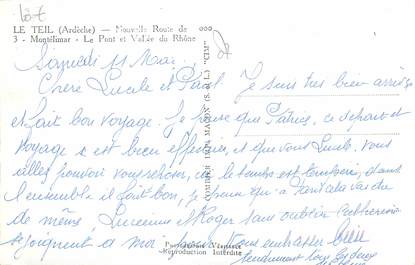 LE TEIL (Ardèche) — Nouvelle Route de
3 - Montélimar - Le Pont et Vallée du Rhône
Samedi 11 Mai
Chère Lucile et Paul. Je suis très bien arrivée
et fait bon voyage. Je pense que Patrice, ce départ et
voyage s est bien effectué, et que vous Lucile, vous
allez pouvoir vous reposer, ici le temps est, dans
l'ensemble il fait bon, je pense qu'a
de même, Lucienne et Roger sans oublier Catherine
se joignent a moi pour vous embrasser bien
tendrement tous
COMBIER IMP. MACON (S.-et-L.) "CIM"
Photographie Véritable
Reproduction Interdite